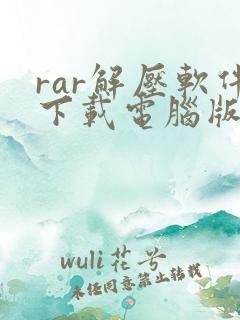 rar解壓軟件
下載電腦版
wuli花兮
未经同意禁止转载